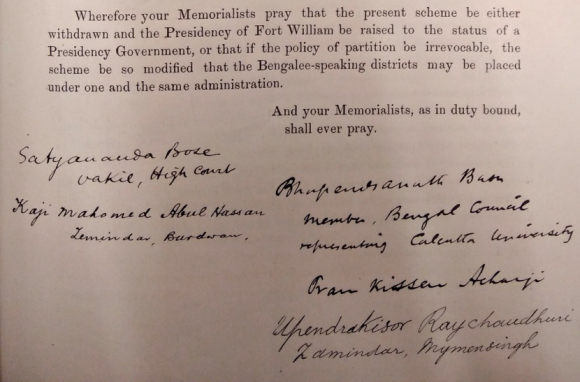 Wherefore your Memorialists pray that the present scheme be either
withdrawn and the Presidency of Fort William be raised to the status of a
Presidency Government, or that if the policy of partition be irrevocable, the
scheme be so modified that the Bengalee-speaking districts may be placed
under one and the same administration.
And your Memorialists, as in duty bound,
shall ever pray.
Satyananda Bose
vakil, High Court
Kaji Mahomed Abul Hassan
Zemindar, Burdwan.
Bhupendranath Basu
member, Bengal Council
representing Calcutta University
Pran Kissen Acharji
Upendrakisor Raychaudhuri
Zamindar, Mymensingh